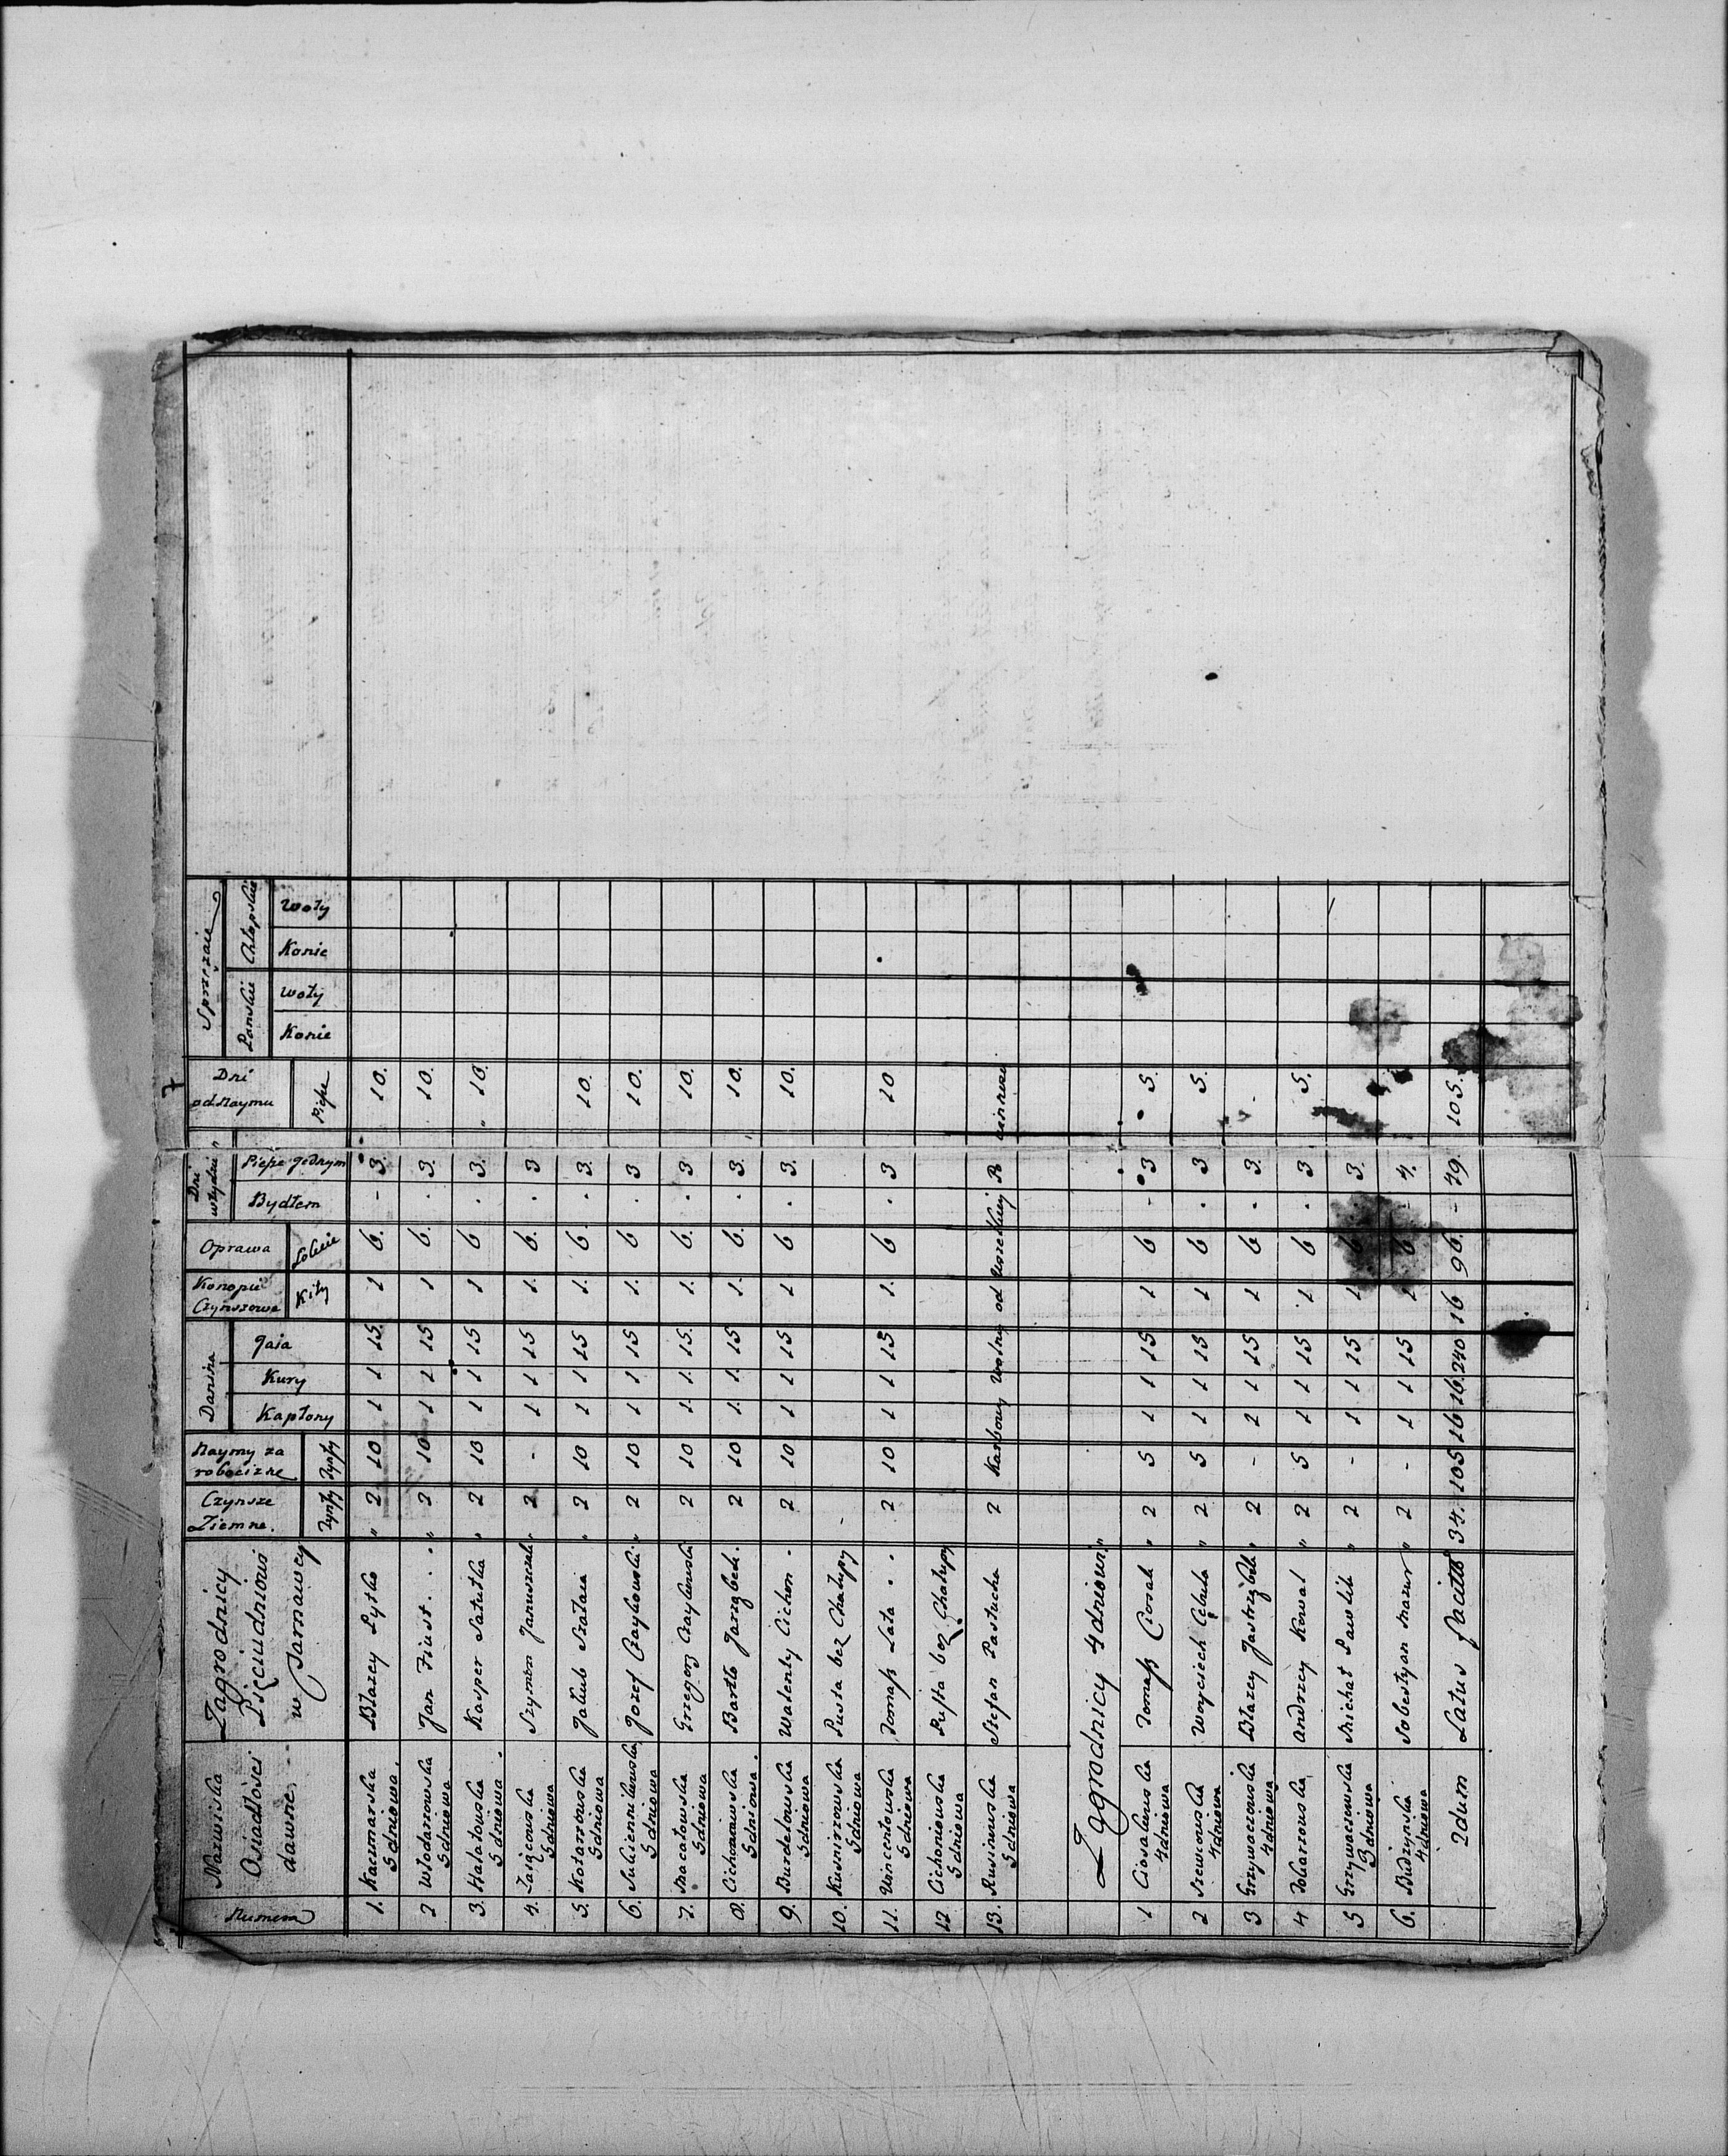 7
Numera | Nazwiska Osiadłości dawne | Zagrodnicy Pięciudniowi w Jarnawcy | Czynsze Ziemne. Zynfy | Naymy za robocizne Zynfy | Danina Kapłony | Kury | Jaia | Konopie Czynszowe Kity | Oprawa Łokcie | Dni w tydniu Bydłem | Piesze jednym | Dni od Naymu Piesze | Sprzężaie Panskie Konie | Woły | Chłopskie Konie | Woły
1. | Kaczmarska 5dniowa. | Błazey Pytko | " 2 | 10 | 1 | 1 | 15. | 1 | 6. | - | 3. | 10.
2 | Włodarzowska 5dniowa | Jan . . . | " 2 | 10 | 1 | 1 | 15 | 1 | 6. | . | 3. | 10.
3. | Hałatowska 5dniowa. | Kasper Sałatka | " 2 | 10 | 1 | 1 | 15 | 1 | 6 | . | 3. | 10.
4. | Zaiącowska 5dniowa | Szymon Januszek | " 2 | - | 1 | 1 | 15 | 1. | 6. | . | 3
5. | Kotarzowska 5dniowa | Jakub Szałaia | " 2 | 10 | 1 | 1 | 15 | 1. | 6 | . | 3. | 10.
6. | Sukiennikowska 5dniowa | Jozef Czaykowski | " 2 | 10 | 1 | 1 | 15 | 1. | 6 | . | 3 | 10.
7. | 5dniowa | Grzegorz Czaykowski | 2 | 10 | 1. | 1. | 15. | 1. | 6. | . | 3 | 10.
8. | Cichoniowska 5dniowa. | Bartło Jarząbek. | 2 | 10 | 1. | 1. | 15 | 1. | 6. | . | 3. | 10.
9. | Burdelowska 5dniowa | Walenty Cichon - | 2 | 10 | 1 | 1 | 15 | 1 | 6 | . | 3. | 10.
10. | Kusnirzowska 5dniowa | Pusta bez Chałupy | -
11. | Wincentowska 5dniowa | Tomasz Łata . . | 2 | 10 | 1 | 1 | 15 | 1. | 6 | . | 3 | 10
12 | Cichoniowska 5dniowa | Pusta bez Chałupy
13. | Rusinowska 5dniowa | Stefan Pastucha | 2 | Karbowy wolny od wszelkiey
Zagrodnicy 4dniowi "
1 | Ciosakowska 4dniowa | Tomasz Ciosak | " 2 | 5 | 1 | 1 | 15 | 1 | 6 | - | 3 | 5.
2 | Szewcowska 4dniowa | Woyciech Cebula | " 2 | 5 | 1 | 1 | 15 | 1 | 6 | . | 3 | 5.
3 | Grzywaczowska 4dniowa | Błazey Jastrząbek | " 2 | - | 1 | 1 | 15 | 1 | 6 | . | 3. | .
4 | 4dniowa | Andrzey Kowal | " 2 | 5 | 1 | 1 | 15 | 1 | 6 | . | 3 | 5.
5 | Grzywaczowska 3dniowa | Michał Pawlik | " 2 | - | 1 | 1 | 15 | 1 | 6 | 3.
6. | Budzynska 4dniowa | Sobestyan Mazur | " 2 | - | 1 | 1 | 15 | 1 | 6 | 4.
2dum Latus facitt | 34. | 105 | 16 | 16. | 240 | 16 | 96. | - | 49. | 105.